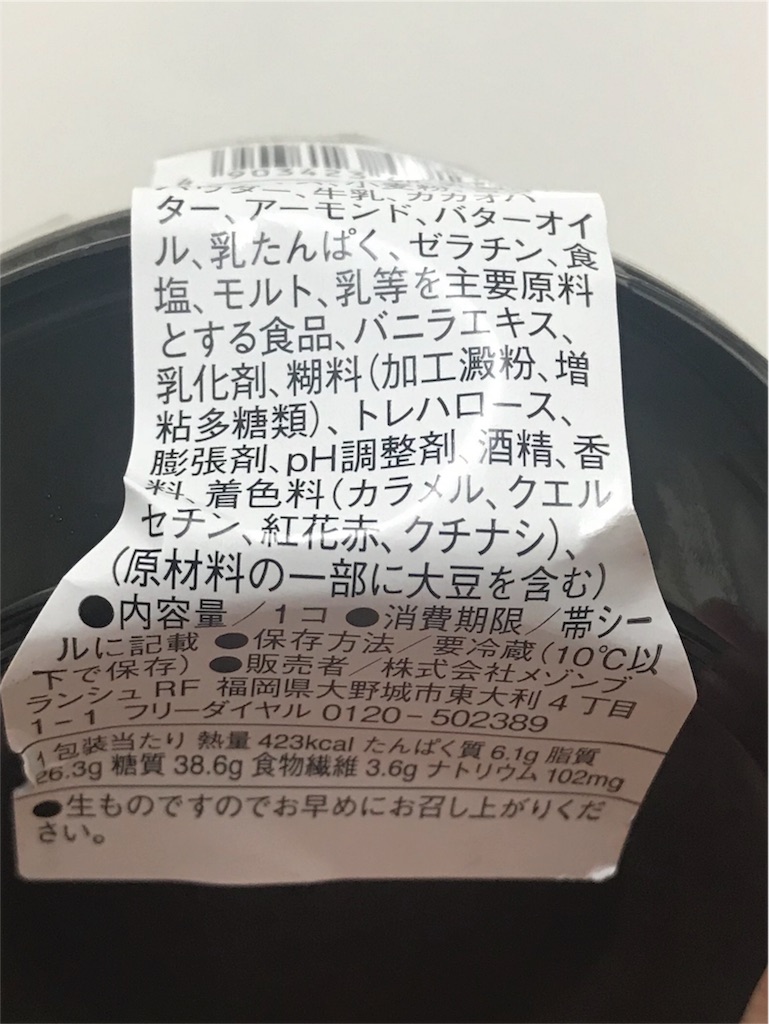 903423
パウダー、牛乳、カカオバ
ター、アーモンド、バターオイ
ル、乳たんぱく、ゼラチン、食
塩、モルト、乳等を主要原料
とする食品、バニラエキス、
乳化剤、糊料(加工澱粉、増
粘多糖類)、トレハロース、
膨張剤、pH調整剤、酒精、香
料、着色料(カラメル、クエル
セチン、紅花赤、クチナシ)、
(原材料の一部に大豆を含む)
●内容量/1コ ●消費期限/帯シー
ルに記載 ●保存方法/要冷蔵(10℃以
下で保存) ●販売者/株式会社メゾンブ
ランシュ RF 福岡県大野城市東大利4丁目
1-1 フリーダイヤル 0120-502389
1包装当たり 熱量 423kcal たんぱく質 6.1g 脂質
26.3g 糖質 38.6g 食物繊維 3.6g ナトリウム 102mg
●生ものですのでお早めにお召し上がりくだ
さい。